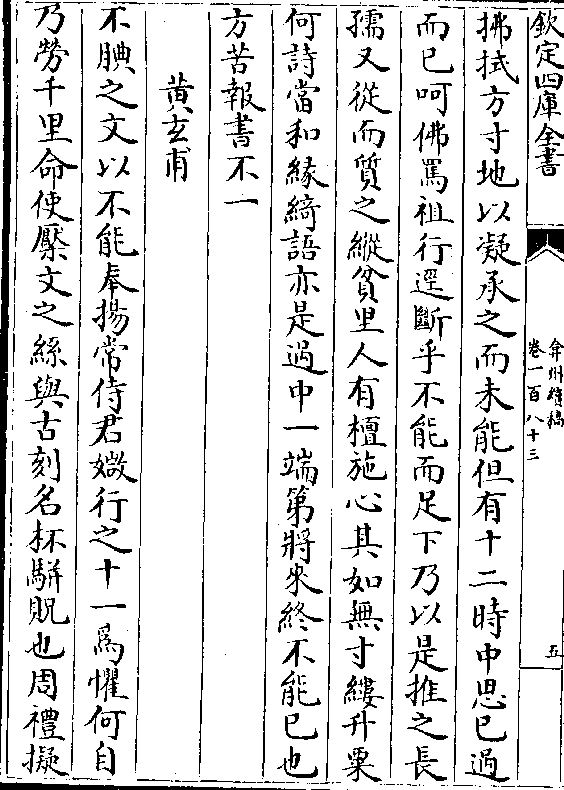 欽定四庫全書
弇州續稿
卷一百八十三
五
拂拭方寸地以凝承之而未能但有十二時中思已過
而已呵佛罵祖行逕斷乎不能而足下乃以是推之長
孺又從而質之縱貧里人有檀施心其如無寸縷升粟
何詩當和緣綺語亦是過中一端第將來終不能已也
方苦報書不一
黄玄甫
不腆之文以不能奉揚常侍君媺行之十一爲懼何自
乃勞千里命使壓文之絲與古刻名杯駢貺也周禮擬